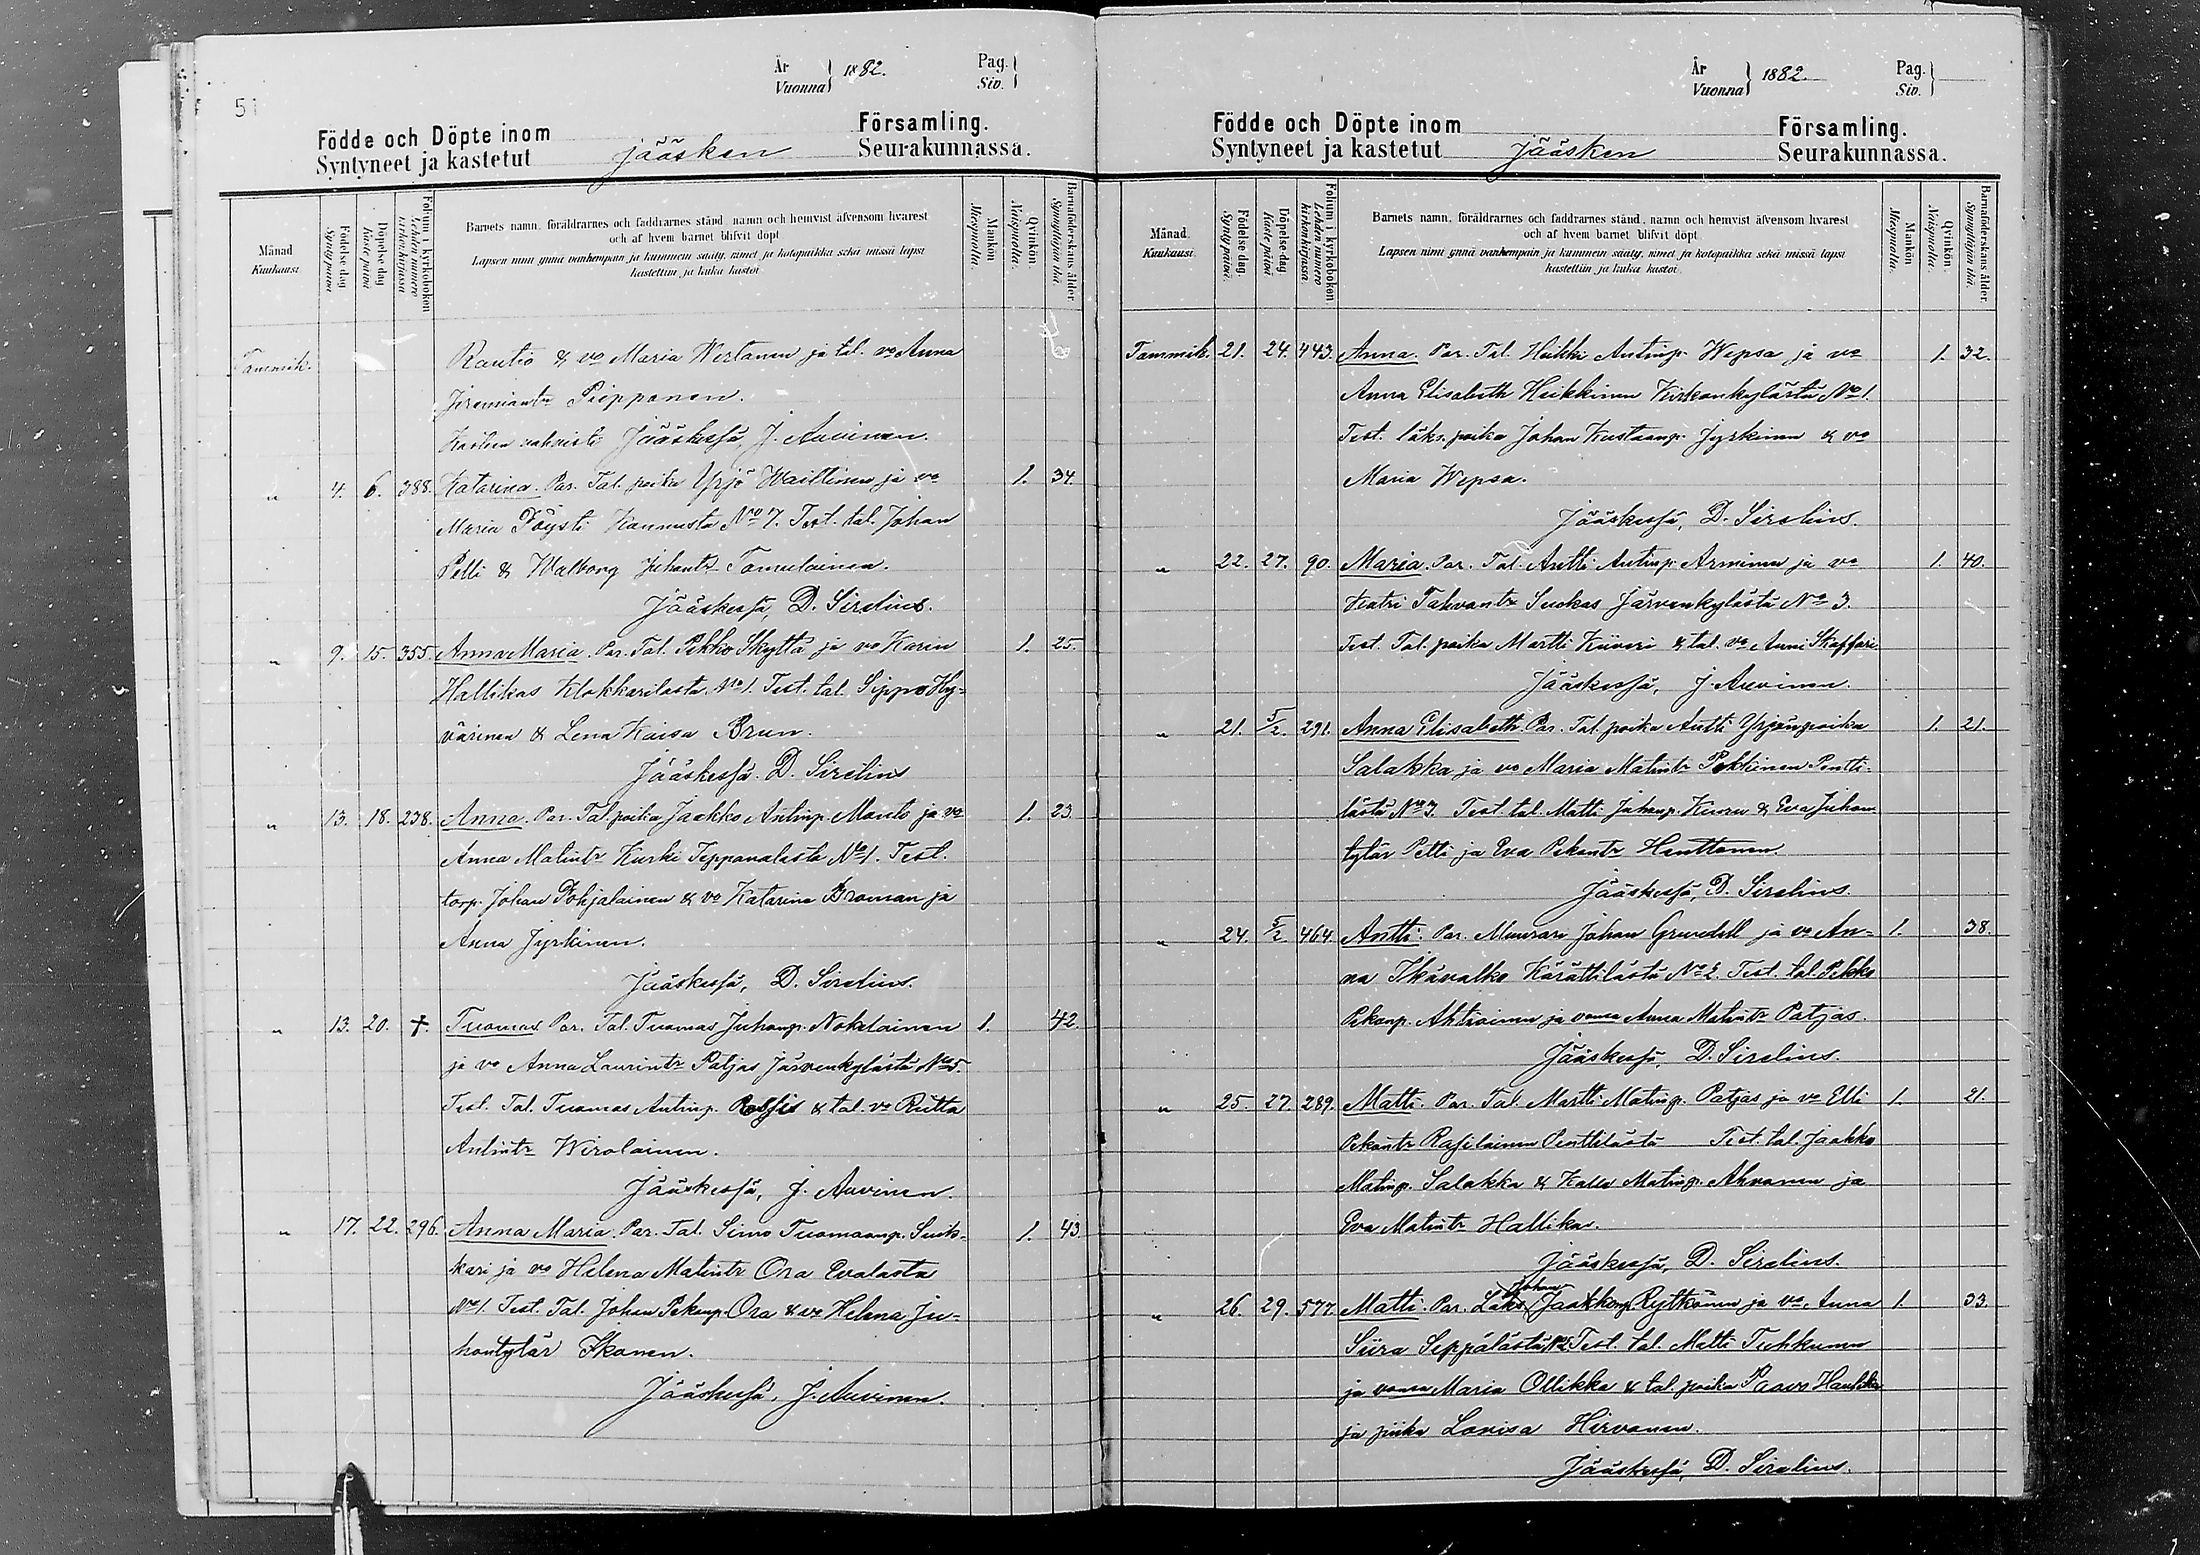 51
År
Vuonna 1882.
Pag.
Siv.
Födde och Döpte inom
Syntyneet ja kastetut Jääsken
Församling.
Seurakunnassa.
Månad
Kuukausi
Födelse dag
Synty päivä
Döpelse dag
Kaste päivä
Folium i kyrkoboken
Lehden numero kirkonkirjassa
Barnets namn, föräldrarnes och faddrarnes stånd, namn och hemvist äfvensom hvarest
och af hvem barnet blifvit döpt
Lapsen nimi ynnä vanhempain ja kummein sääty, nimet ja kotopaikka sekä missä lapsi
kastettiin ja kuka kastoi
Mankön
Miespuolta.
Qvinkön.
Naispuolta.
Barnaföderskans ålder
Synnyttäjän ikä.
Tammik. Rautio & vo Maria Wertanen ja tal. vo Anna
Jeremiantr Piipponen.
Kasteen vahvisti Jääskessä, J. Auvinen.
" 4. 6. 388. Katarina. Par. Tal. poika Yrjö Waittinen ja vo 1. 34.
Maria Pöysti Kannusta No 7. Test. tal. Johan
Pelli & Walborg Juhantr Tomulainen.
Jääskessä, D. Sirelius.
" 9. 15. 355. Anna Maria. Par. Tal. Pekko Skyttä ja vo Karin 1. 25.
Hallikas Klokkarilasta No 1. Test. tal. Sippo Hy-
värinen & Lena Kaisa Brun.
Jääskessä. D. Sirelius
" 13. 18. 238. Anna. Par. Tal. poika Jaakko Antinp. Manto ja vo 1. 23.
Anna Matintr Kurki Teppanalasta No 1. Test.
torp. Johan Pohjalainen & vo Katarina Broman ja
Anna Jyrkinen.
Jääskessä, D. Sirelius.
" 13. 20. †. Tuomas Par. Tal. Tuomas Juhanp. Nokelainen 1. 42.
ja vo Anna Laurintr Patjas Järvenkylästä No 5.
Test. Tal. Tuomas Antinp. & tal. vo Riitta
Antintr Wirolainen.
Jääskessä, J. Auvinen.
" 17. 22. 296. Anna Maria. Par. Tal. Simo Tuomaanp. Suik- 1. 43.
kari ja vo Helena Matintr Ora
No 1. Test. Tal. Johan Pekanp. Ora & vo Helena Ju-
hontytär Ikonen.
Jääskessä, J. Auvinen.
År
Vuonna 1882.
Pag.
Siv.
Födde och Döpte inom
Syntyneet ja kastetut Jääsken
Församling.
Seurakunnassa.
Månad.
Kuukausi.
Födelse dag.
Synty päivä.
Döpelse dag
Kaste päivä
Folium i kyrkoboken
Lehden numero kirkonkirjassa.
Barnets namn, föräldrarnes och faddrarnes stånd, namn och hemvist äfvensom hvarest
och af hvem barnet blifvit döpt.
Lapsen nimi ynnä vanhempain ja kummein sääty, nimet ja kotopaikka sekä missä lapsi
kastettiin ja kuka kastoi.
Mankön
Miespuolta.
Qvinkön.
Naispuolta.
Barnaföderskans ålder
Synnyttäjän ikä.
Tammik. 21. 24. 443. Anna. Par. Tal. Heikki Antinp. Wepsa ja vo 1. 32.
Anna Elisabeth Heikkinen Kirkonkylästä No 1.
Test. läks. poika Johan Kustaanp. Jyrkinen & vo
Maria Wepsa.
Jääskessä, D. Sirelius.
" 22. 27. 90. Maria. Par. Tal. Antti Antinp. Arminen ja vo 1. 40.
Featri Tahvontr Suokas Järvenkylästä No 3.
Test. Tal. poika Martti Kiiveri & tal. vo Anni Skaffari
Jääskessä, J. Auvinen.
" 21. 5/2. 291. Anna Elisabeth. Par. Tal. poika Antti Yrjönpoika 1. 21.
Salakka ja vo Maria Matintr Pekkinen Pentti-
lästä No 3. Test. tal. Matti Juhanp. Kuoru & Eva Juhan
tytär Pelli ja Eva Pekantr Henttonen.
Jääskessä, D. Sirelius.
" 24. 5/2. 464. Antti. Par. Muurari Johan Grundell ja vo An- 1. 38.
na Ikävalko Kärättilästä No 2. Test. tal. Pekko
Pekanp. Ahtiainen ja vaimo Anna Matintr Patjas.
Jääskessä, D. Sirelius.
" 25. 27. 289. Matti. Par. Tal. Martti Matinp. Patjas ja vo Elli 1. 21.
Pekantr Rasilainen Penttilästä Test. tal. Jaakko
Matinp. Salakka & Kalle Matinp. Ahvonen ja
Eva Matintr Hallikas.
Jääskessä, D. Sirelius.
Johan
" 26. 29. 577. Matti. Par. Läks. Jaakkonp. Rytkönen ja vo Anna 1. 33.
Siira Seppälästä No 2. Test. tal. Matti Tuhkunen
ja vaimo Maria Ollikka & tal. poika Paavo Haukka
ja piika Lovisa Hirvonen.
Jääskessä, D. Sirelius.